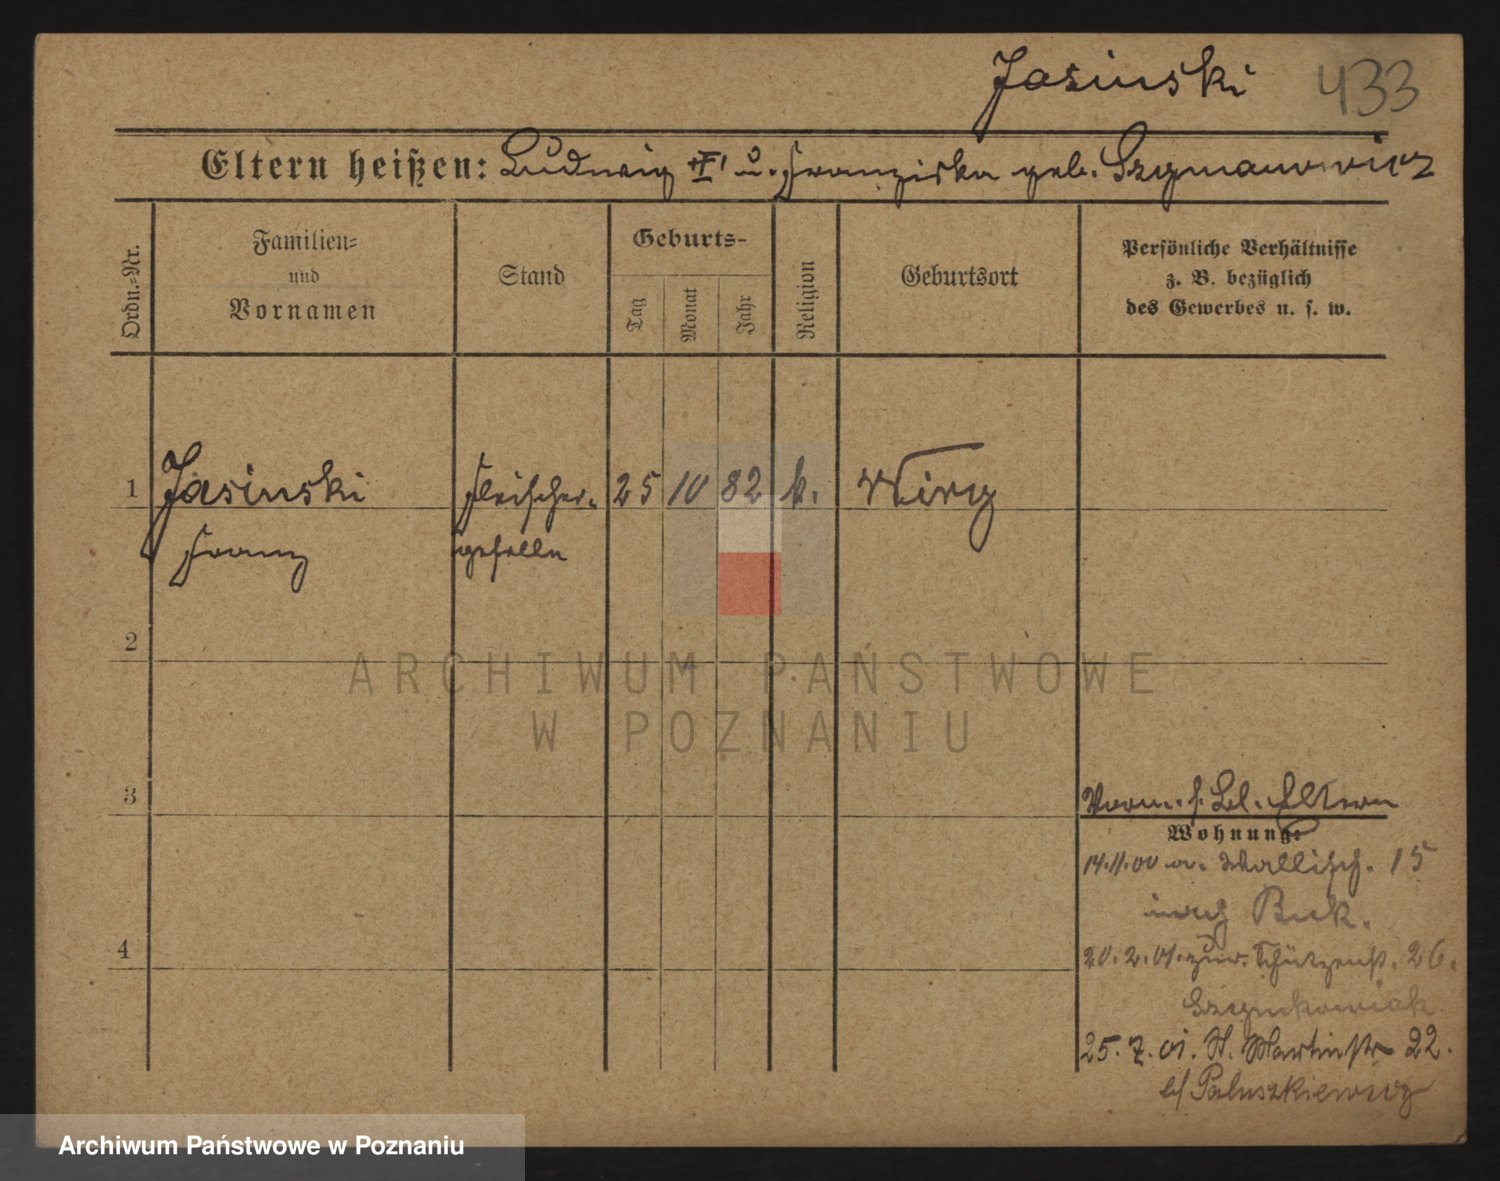 Jasinski 433
Eltern heißen: Ludwig u. Franziska geb. Szymanowicz
Ordn.-Nr.
Familien- und Vornamen
Stand
Geburts-
Tag
Monat
Jahr
Religion
Geburtsort
Persönliche Verhältnisse
z. B. bezüglich
des Gewerbes u. s. w.
1 Jasinski Fleischer- 25 10 82 k.
Franz geselle
2
ARCHIWUM PAŃSTWOWE
W POZNANIU
3
Vorm. s. Bl. Eltern
Wohnung:
14.11.00 Wallisch. 15
Buk.
20.2.01. Schützenstr. 26.
25.7.01. St. Martinstr 22.
b/ Paluszkiewicz
4
Archiwum Państwowe w Poznaniu